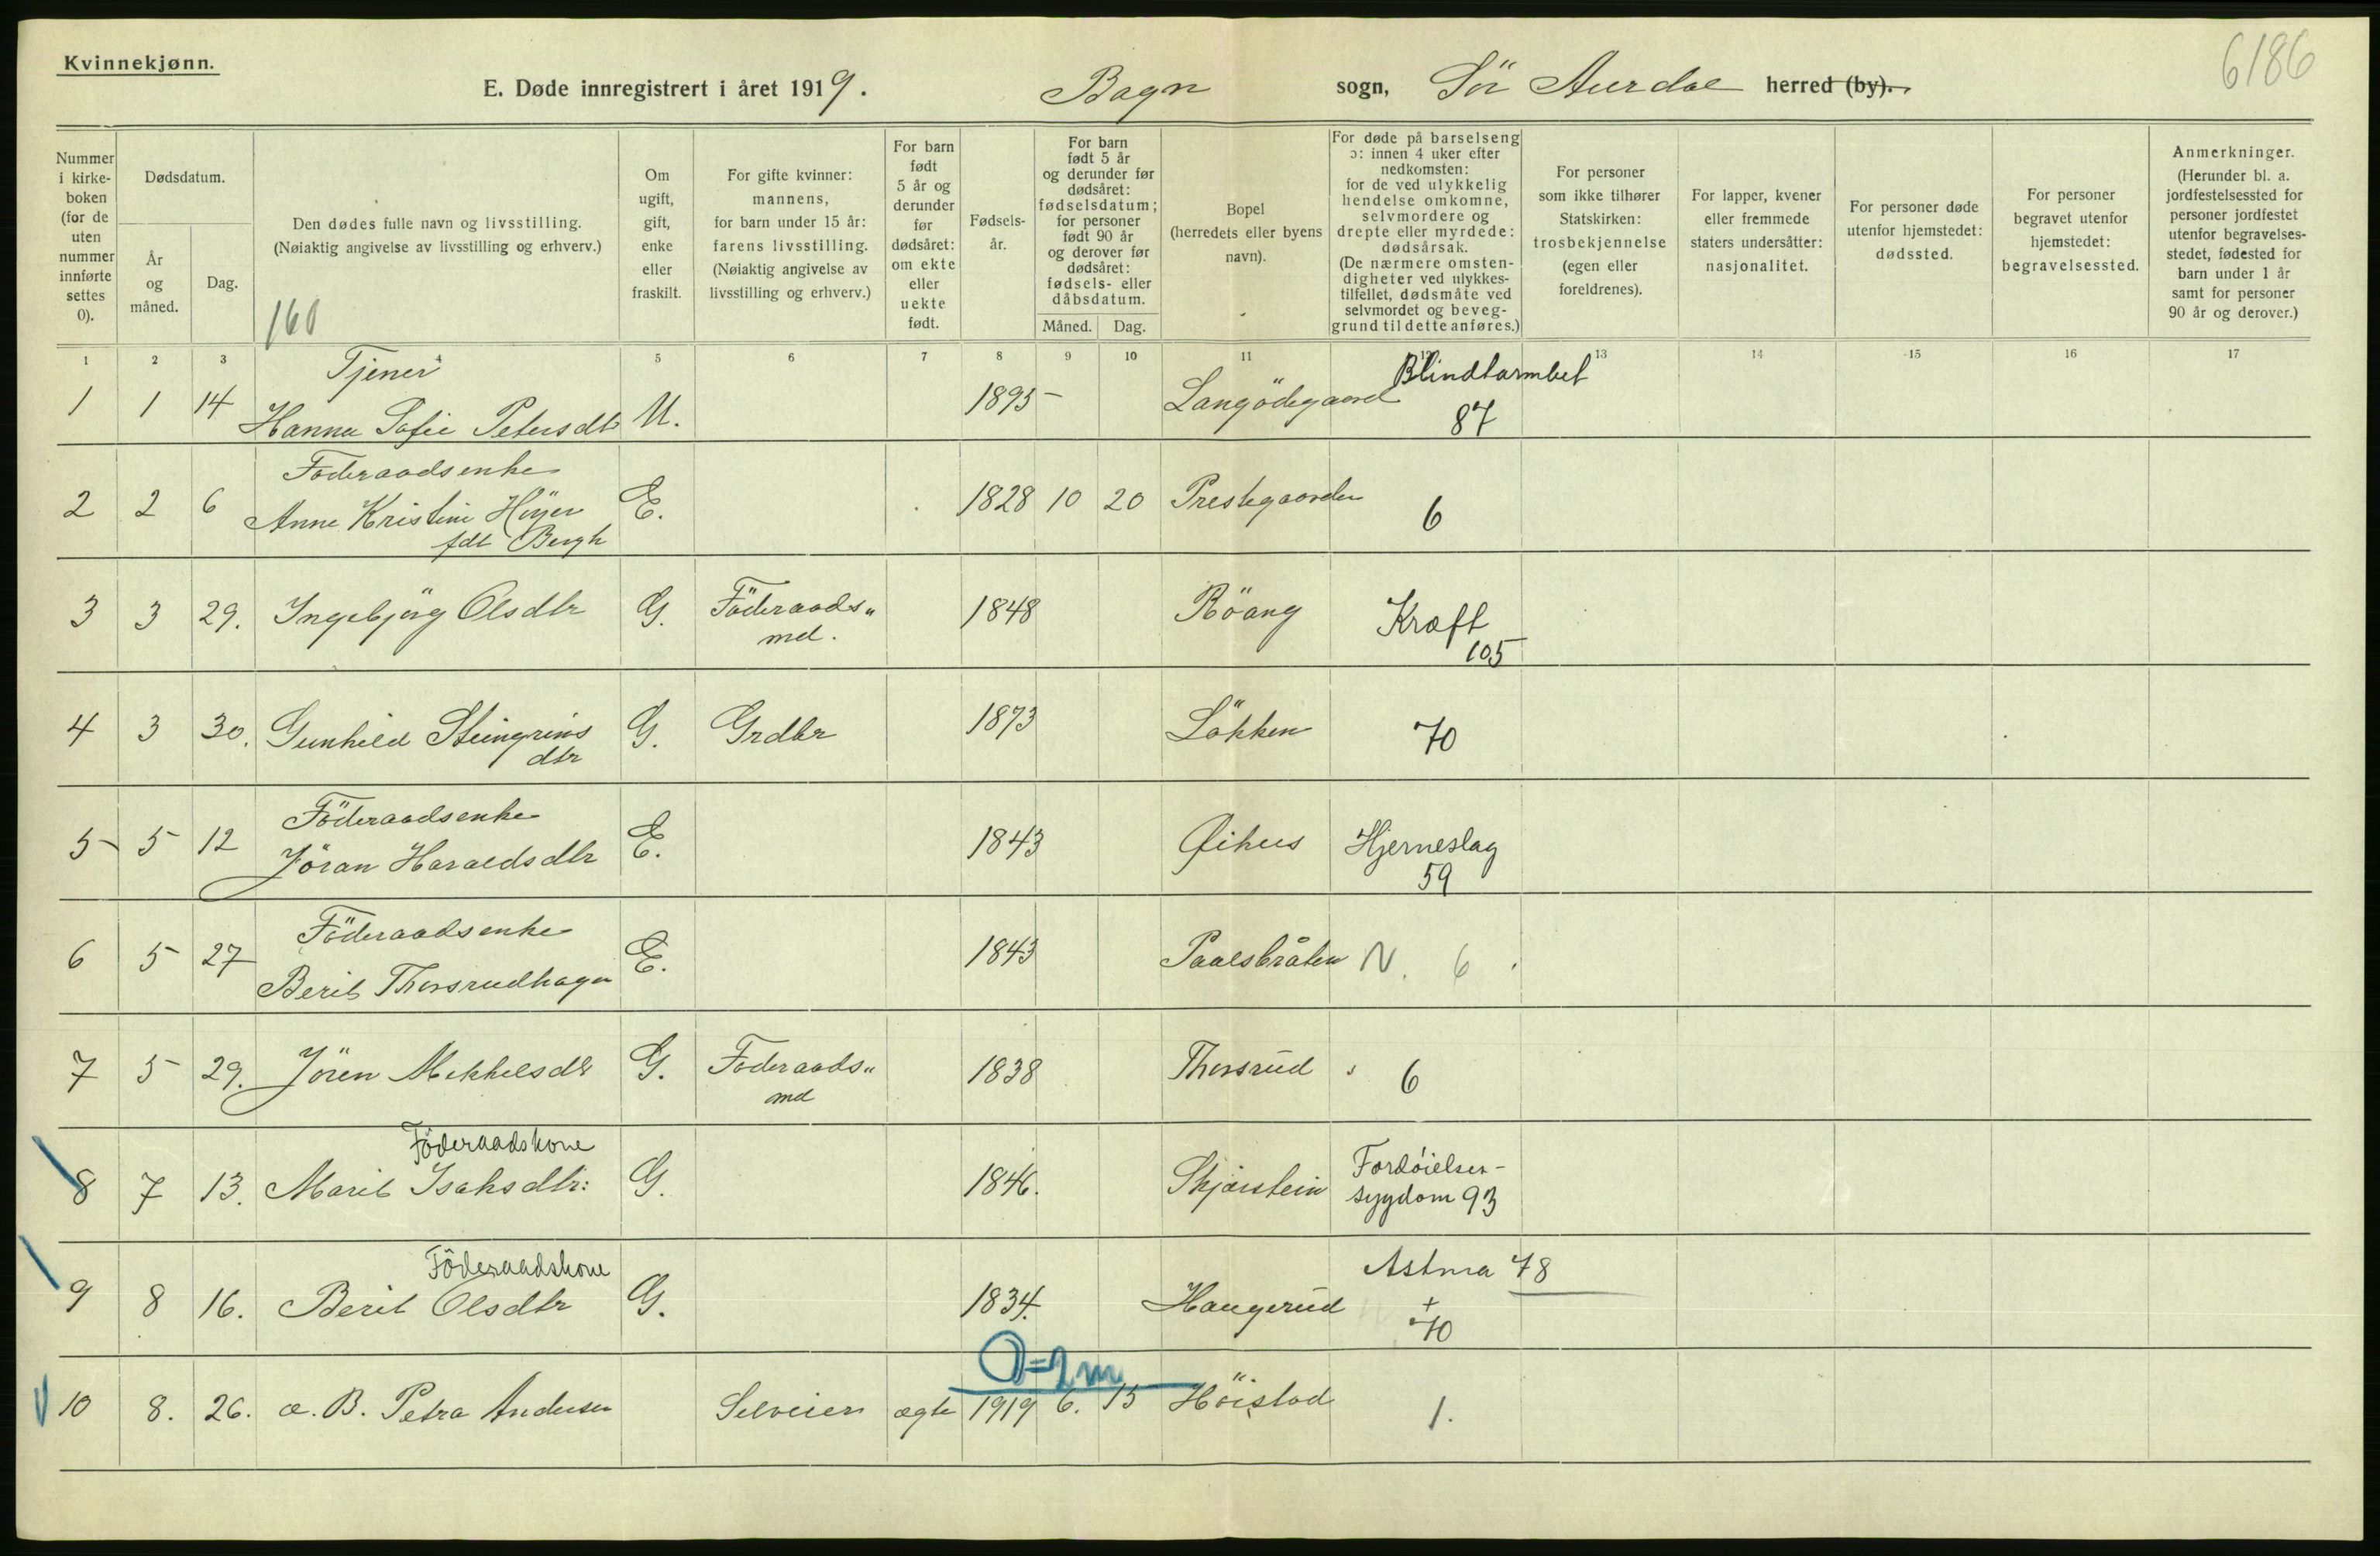 Kvinnekjønn.
6186
E. Døde innregistrert i året 1919. Bagn sogn, Sör Aurdal herred (by).
Nummer i kirke-boken (for de uten nummer innførte settes 0).
Dødsdatum.
År og måned.
Dag.
Den dødes fulle navn og livsstilling. (Nøiaktig angivelse av livsstilling og erhverv.)
160
Om ugift, gift, enke eller fraskilt.
For gifte kvinner: mannens, for barn under 15 år: farens livsstilling. (Nøiaktig angivelse av livsstilling og erhverv.)
For barn født 5 år og derunder før dødsåret: om ekte eller uekte født.
Fødsels-år.
For barn født 5 år og derunder før dødsåret: fødselsdatum; for personer født 90 år og derover før dødsåret: fødsels- eller dåbsdatum.
Måned. Dag.
Bopel (herredets eller byens navn).
For døde på barselseng ɔ: innen 4 uker efter nedkomsten: for de ved ulykkelig hendelse omkomne, selvmordere og drepte eller myrdede: dødsårsak. (De nærmere omsten-digheter ved ulykkes-tilfellet, dødsmåte ved selvmordet og beveg-grund til dette anføres.)
For personer som ikke tilhører Statskirken: trosbekjennelse (egen eller foreldrenes).
For lapper, kvener eller fremmede staters undersåtter: nasjonalitet.
For personer døde utenfor hjemstedet: dødssted.
For personer begravet utenfor hjemstedet: begravelsessted.
Anmerkninger. (Herunder bl. a. jordfestelsessted for personer jordfestet utenfor begravelses-stedet, fødested for barn under 1 år samt for personer 90 år og derover.)
1 2 3 4 5 6 7 8 9 10 11 12 13 14 15 16 17
Tjener Blindtarmbet
1 1 14 Hanna Sofie Petersdtr U. 1895 Langödegaard 87
Föderaadsenke
2 2 6 Anne Kristine Höyer E. 1828 10 20 Prestegaarden 6
fdt Bergh
3 3 29. Ingebjörg Olsdtr G. Föderaads„ 1848 Röang Kræft
md. 105
4 3 30. Gunhild Steingrims G. Grdbr 1873 Lökken 70
dtr
Föderaadsenke
5 5 12 Jöran Haraldsdtr E. 1843 Øihus Hjerneslag
59
Föderaadsenke
6 5 27 Berit Thorsrudhagen E. 1843 Paalsbråten N. 6
7 5 29. Jören Mikkelsdtr G. Föderaads„ 1838 Thorsrud 6
md
Föderaadskone
8 7 13. Marit Isaksdtr: G. 1846. Skjærstein Fordöielses-
sygdom 93
Föderaadskone Astma 78
9 8 16. Berit Olsdtr G. 1834. Haugerud +
70
0=2m
10 8. 26. æ. B. Petra Andersen Selveier ægte 1919 6. 15 Höistad 1.